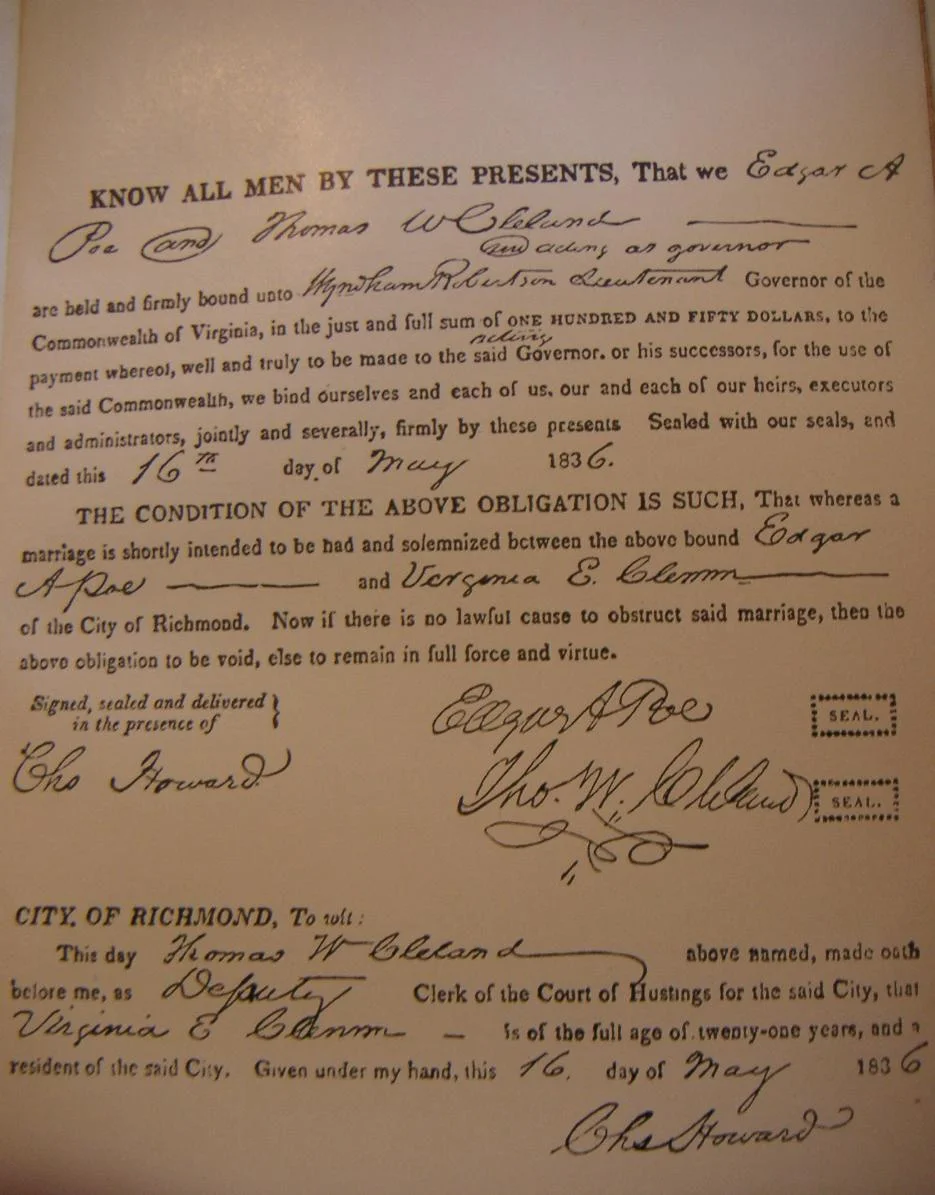 KNOW ALL MEN BY THESE PRESENTS, That we Edgar A
Poe and Thomas W Cleland
and acting as governor
are held and firmly bound unto Wyndham Robertson Lieutenant Governor of the
Commonwealth of Virginia, in the just and full sum of ONE HUNDRED AND FIFTY DOLLARS, to the
acting
payment whereof, well and truly to be made to the said Governor, or his successors, for the use of
the said Commonwealth, we bind ourselves and each of us, our and each of our heirs, executors
and administrators, jointly and severally, firmly by these presents Sealed with our seals, and
dated this 16th day of May 1836.
THE CONDITION OF THE ABOVE OBLIGATION IS SUCH, That whereas a
marriage is shortly intended to be had and solemnized between the above bound Edgar
A Poe and Verginia E. Clemm
of the City of Richmond. Now if there is no lawful cause to obstruct said marriage, then the
above obligation to be void, else to remain in full force and virtue.
Signed, sealed and delivered
in the presence of
Edgar A Poe SEAL.
Chs Howard
Tho. W. Cleland SEAL.
CITY OF RICHMOND, To wit:
This day Thomas W Cleland above named, made oath
before me, as Deputy Clerk of the Court of Hustings for the said City, that
Virginia E Clemm is of the full age of twenty-one years, and a
resident of the said City. Given under my hand, this 16. day of May 1836
Chs Howard